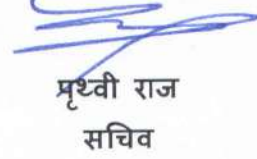 पृथ्वी राज
सचिव